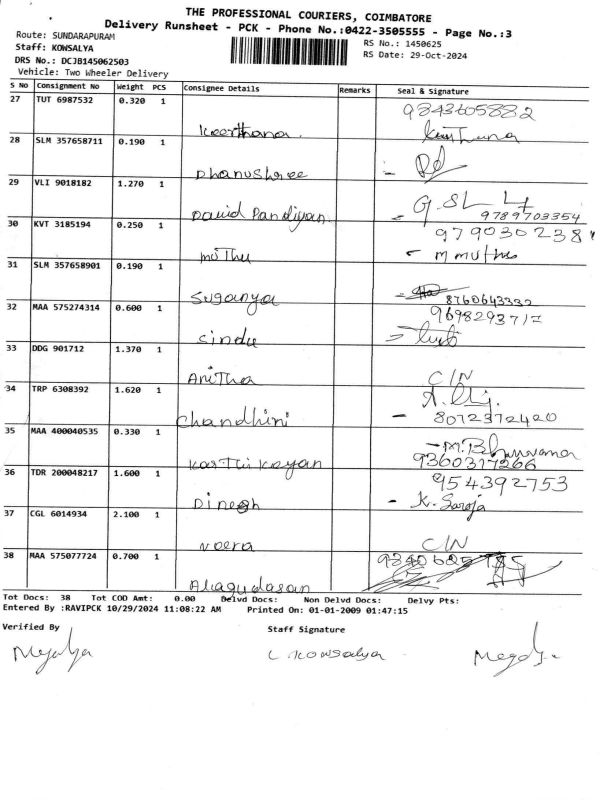 THE PROFESSIONAL COURIERS, COIMBATORE
Delivery Runsheet - PCK - Phone No.:0422-3505555 - Page No.:3
Route: SUNDARAPURAM
RS No.: 1450625
Staff: KOWSALYA
RS Date: 29-Oct-2024
DRS No.: DCJB145062503
Vehicle: Two Wheeler Delivery
S No Consignment No Weight PCS Consignee Details Remarks Seal & Signature
27 TUT 6987532 0.320 1 Keerthana 9843605882
28 SLM 357658711 0.190 1 Dhanushree
29 VLI 9018182 1.270 1 David Pandiyan 9789703354
30 KVT 3185194 0.250 1 muthu 979030238 m muthu
31 SLM 357658901 0.190 1 Suganya 8760643332
32 MAA 575274314 0.600 1 Sindu 9698293717
33 DDG 901712 1.370 1 Anitha C/N
34 TRP 6308392 1.620 1 Chandhini 8072372420
35 MAA 400040535 0.330 1 Karthikeyan 9360317266
36 TDR 200048217 1.600 1 Dinesh 954392753 K. Saroja
37 CGL 6014934 2.100 1 Veera C/N
38 MAA 575077724 0.700 1 Alagudasan
Tot Docs: 38 Tot COD Amt: 0.00 Delvd Docs: Non Delvd Docs: Delvy Pts:
Entered By :RAVIPCK 10/29/2024 11:08:22 AM Printed On: 01-01-2009 01:47:15
Verified By Staff Signature
L KOWSalya